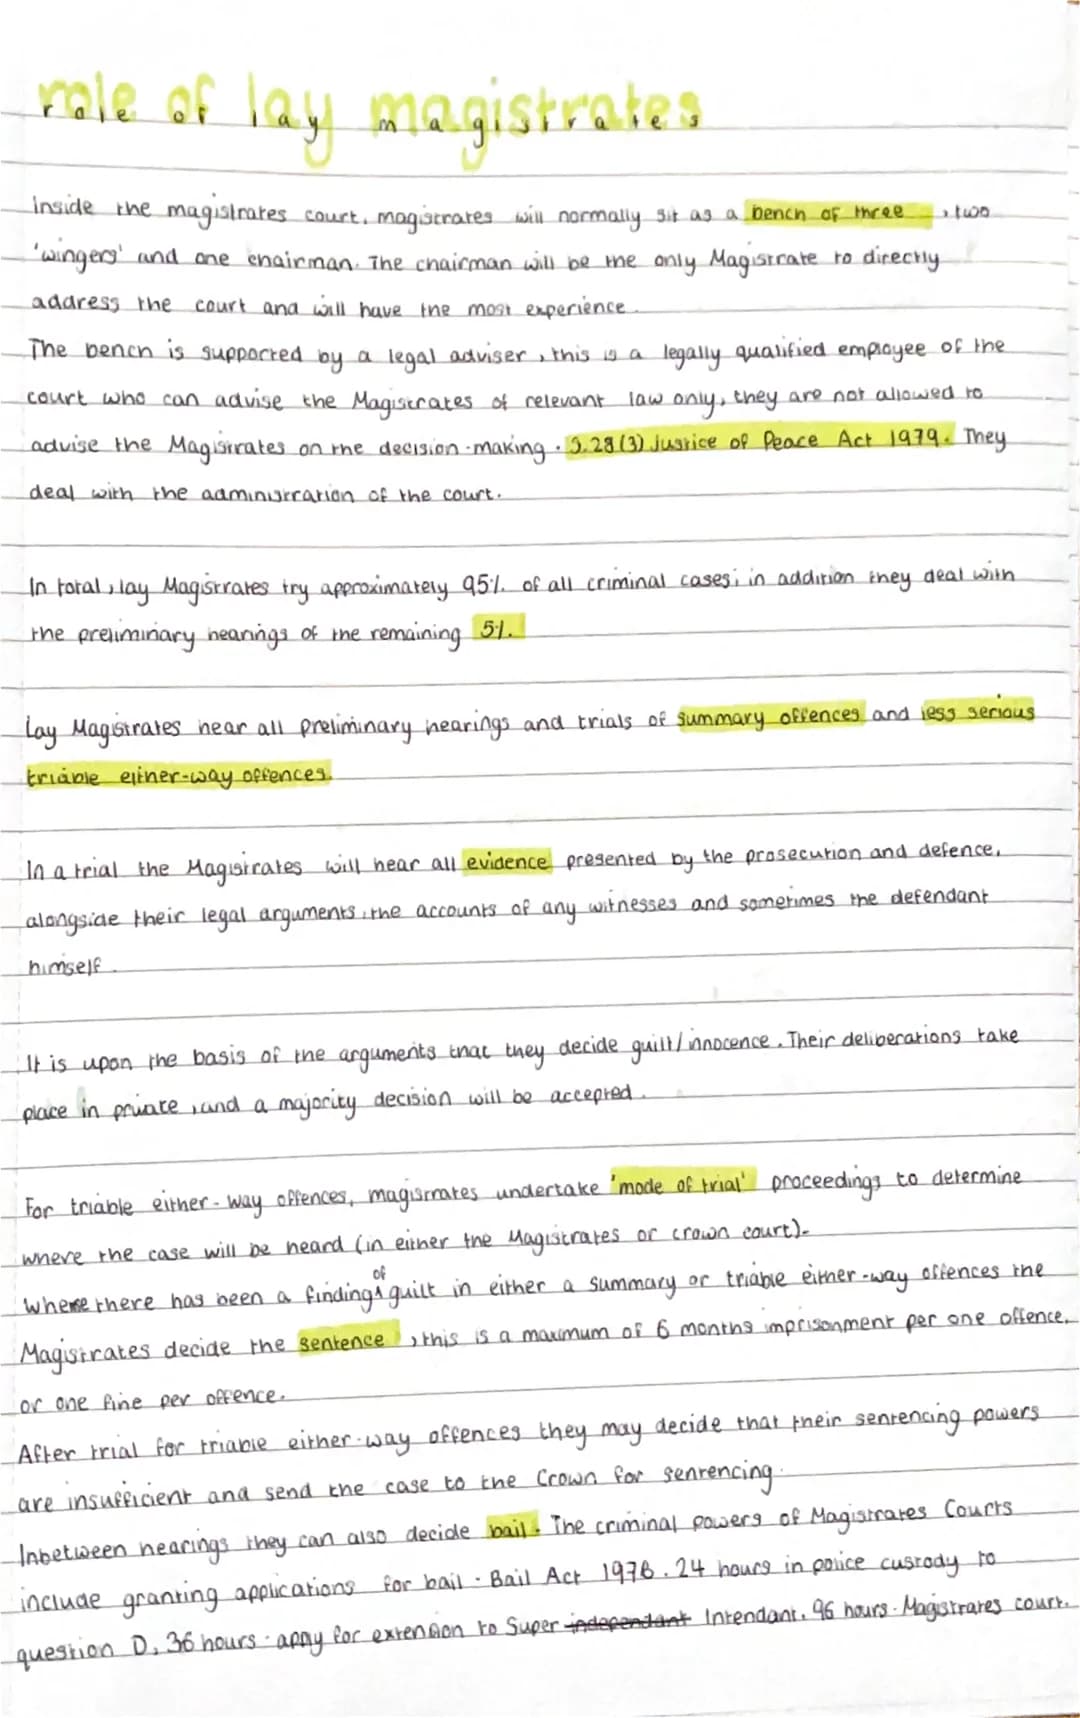 role of lay magistrates
Inside the magistrates court, magistrates will normally sit as a bench of three, two
'wingers' and one chairman. The chairman will be the only Magistrate to directly
address the court and will have the most experience.
The bench is supported by a legal adviser, this is a legally qualified employee of the
court who can advise the Magistrates of relevant law only, they are not allowed to
advise the Magistrates on the decision-making. S.28(3) Justice of Peace Act 1979. They
deal with the administration of the court.
In total, lay Magistrates try approximately 95% of all criminal cases; in addition they deal with
the preliminary hearings of the remaining 5%.
Lay Magistrates hear all preliminary hearings and trials of summary offences and less serious
triable either-way offences.
In a trial the Magistrates will hear all evidence presented by the prosecution and defence,
alongside their legal arguments, the accounts of any witnesses and sometimes the defendant
himself.
It is upon the basis of the arguments that they decide guilt/innocence. Their deliberations take
place in private, and a majority decision will be accepted.
For triable either-way offences, magistrates undertake 'mode of trial' proceedings to determine
where the case will be heard (in either the Magistrates or crown court).
Where there has been a finding of guilt in either a summary or triable either-way offences the
Magistrates decide the sentence, this is a maximum of 6 months imprisonment per one offence,
or one fine per offence.
After trial for triable either-way offences they may decide that their sentencing powers
are insufficient and send the case to the Crown for sentencing.
Inbetween hearings they can also decide bail. The criminal powers of Magistrates Courts
include granting applications for bail - Bail Act 1976. 24 hours in police custody to
question D, 36 hours - apply for extension to Super independant Intendant, 96 hours - Magistrates court.